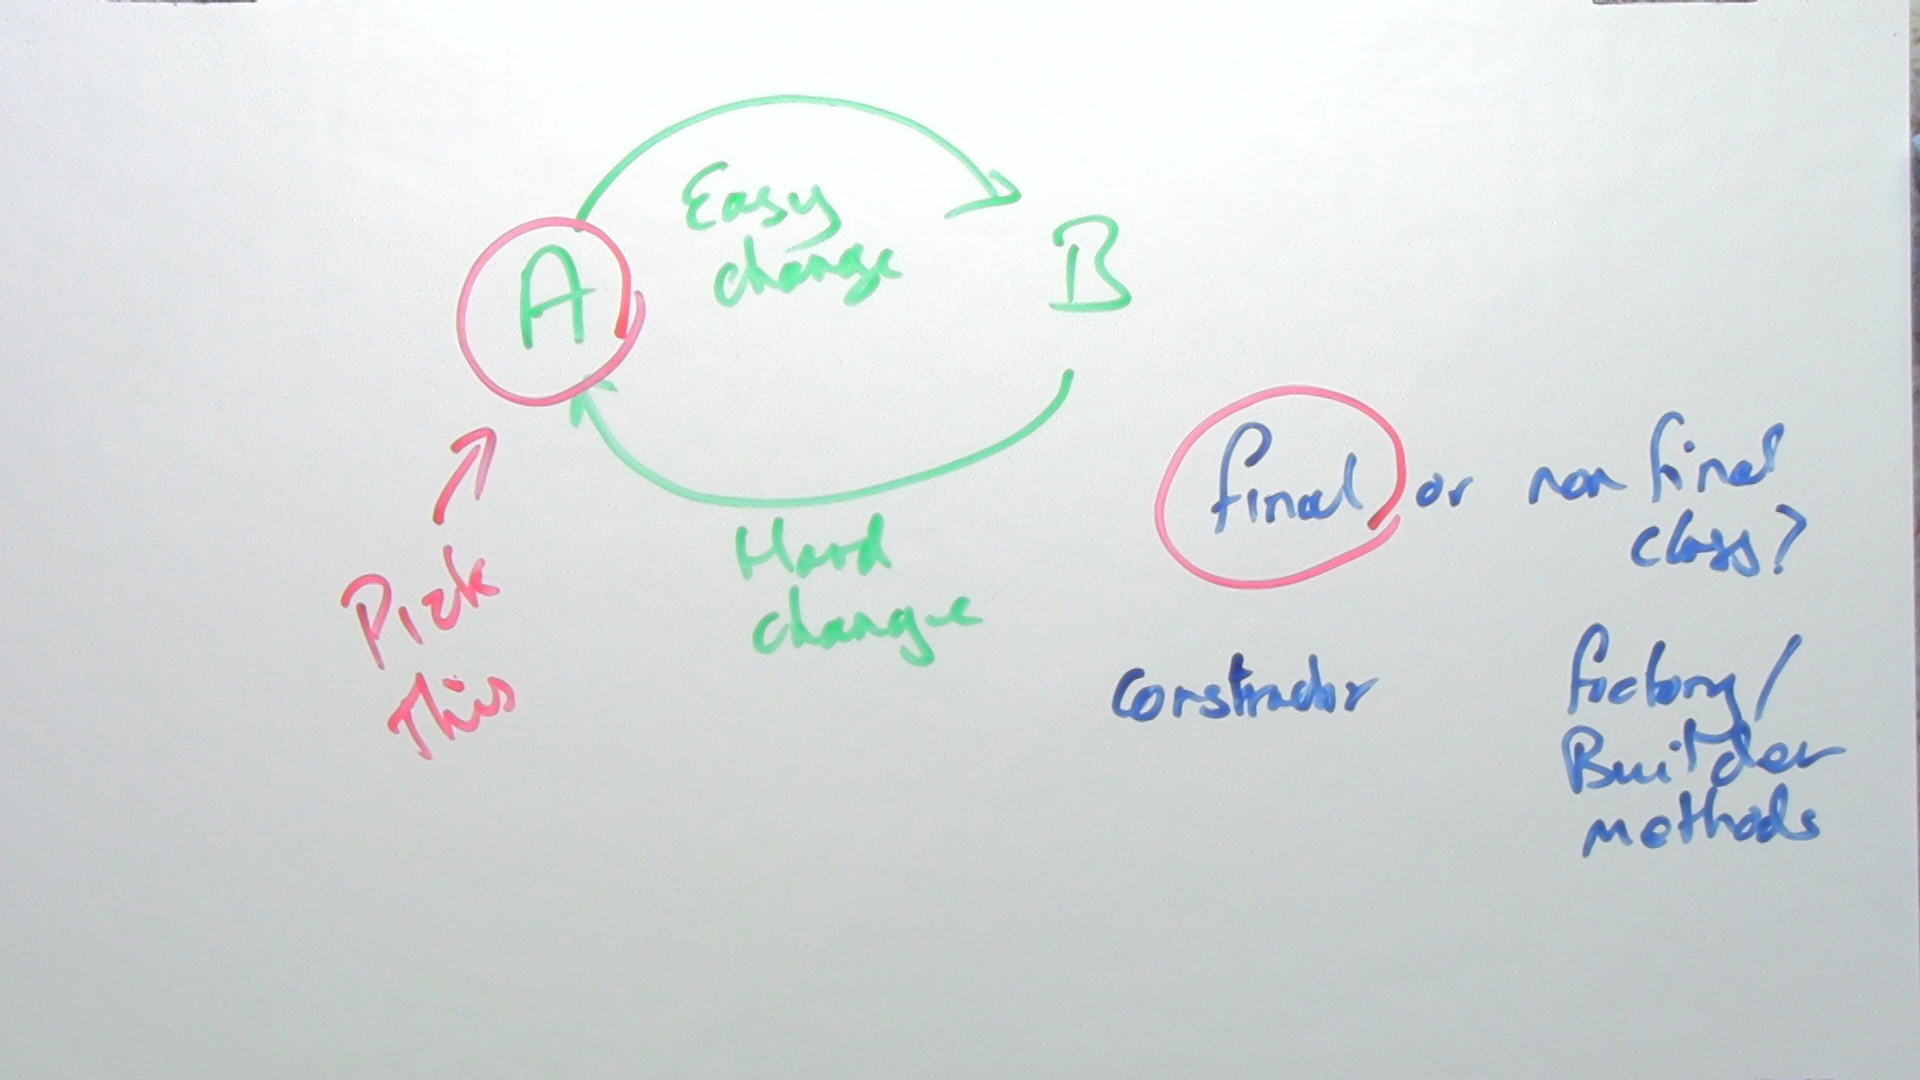 Easy
change
A
B
Hard
change
Pick
This
final or non final
class?
constructor
factory/
Builder
methods